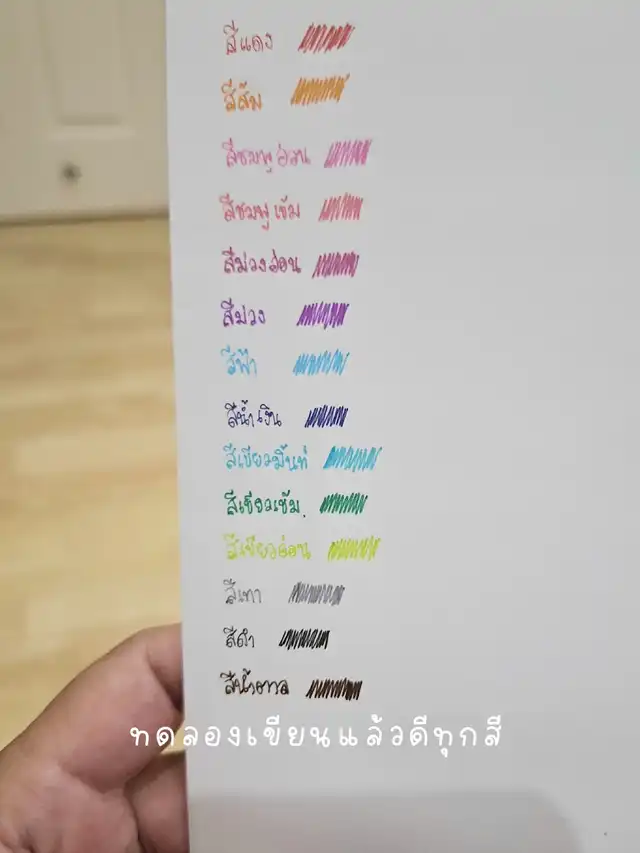 สีแดง
สีส้ม
สีชมพูอ่อน
สีชมพูเข้ม
สีม่วงอ่อน
สีม่วง
สีฟ้า
สีน้ำเงิน
สีเขียวมิ้นท์
สีเขียวเข้ม.
สีเขียวอ่อน
สีเทา
สีดำ
สีน้ำตาล
ทดลองเขียนแล้วดีทุกสี